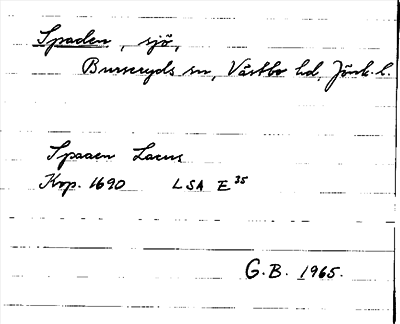 Spaden, sjö,
Burseryds sn, Västbo hd, Jönk. l.
Spaaen Lacus
Kop. 1690 LSA E 35
G.B. 1965.